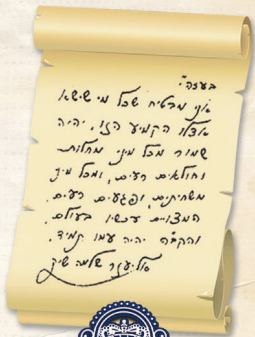 בעזה"י
אני מבטיח שכל מי שישא
אצלו הקמיע הזו, יהיה
שמור מכל מיני מחלות
וחולאים רעים, ומכל מיני
משחיתים, ופגעים רעים
המצויים עכשיו בעולם,
והקב"ה יהיה עמו תמיד.
אליעזר שלמה שיק